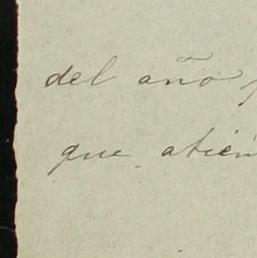 del año
que atien